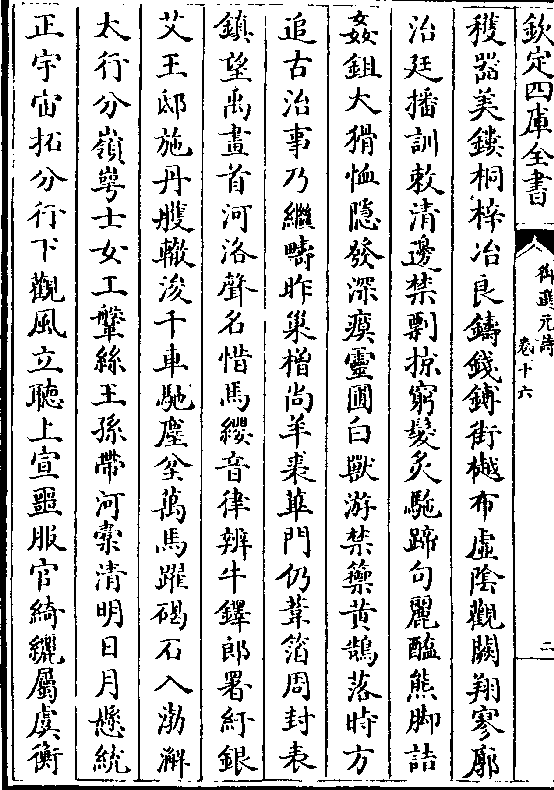 欽定四庫全書
御選元詩
卷十六
二
穫器美鏤桐梓冶良鑄錢鎛街樾布虛陰觀闕翔寥廓
治廷播訓敕清邊禁剽掠窮髮炙駞蹄句麗醢熊脚詰
姦鉏大猾恤隱發深瘼靈圃白獸游禁籞黃鵠落時方
追古治事乃繼疇昨巢橧尚羊裘蓽門仍葦箔周封表
鎮望禹畫首河洛聲名惜馬纓音律辨牛鐸郎署紆銀
艾王邸施丹雘轍浚千車馳塵坌萬馬躍碣石入渤澥
太行分嶺崿士女工鞶絲王孫帶河橐清明日月懸統
正宇宙拓分行下觀風立聽上宣噩服官綺纚屬虞衡